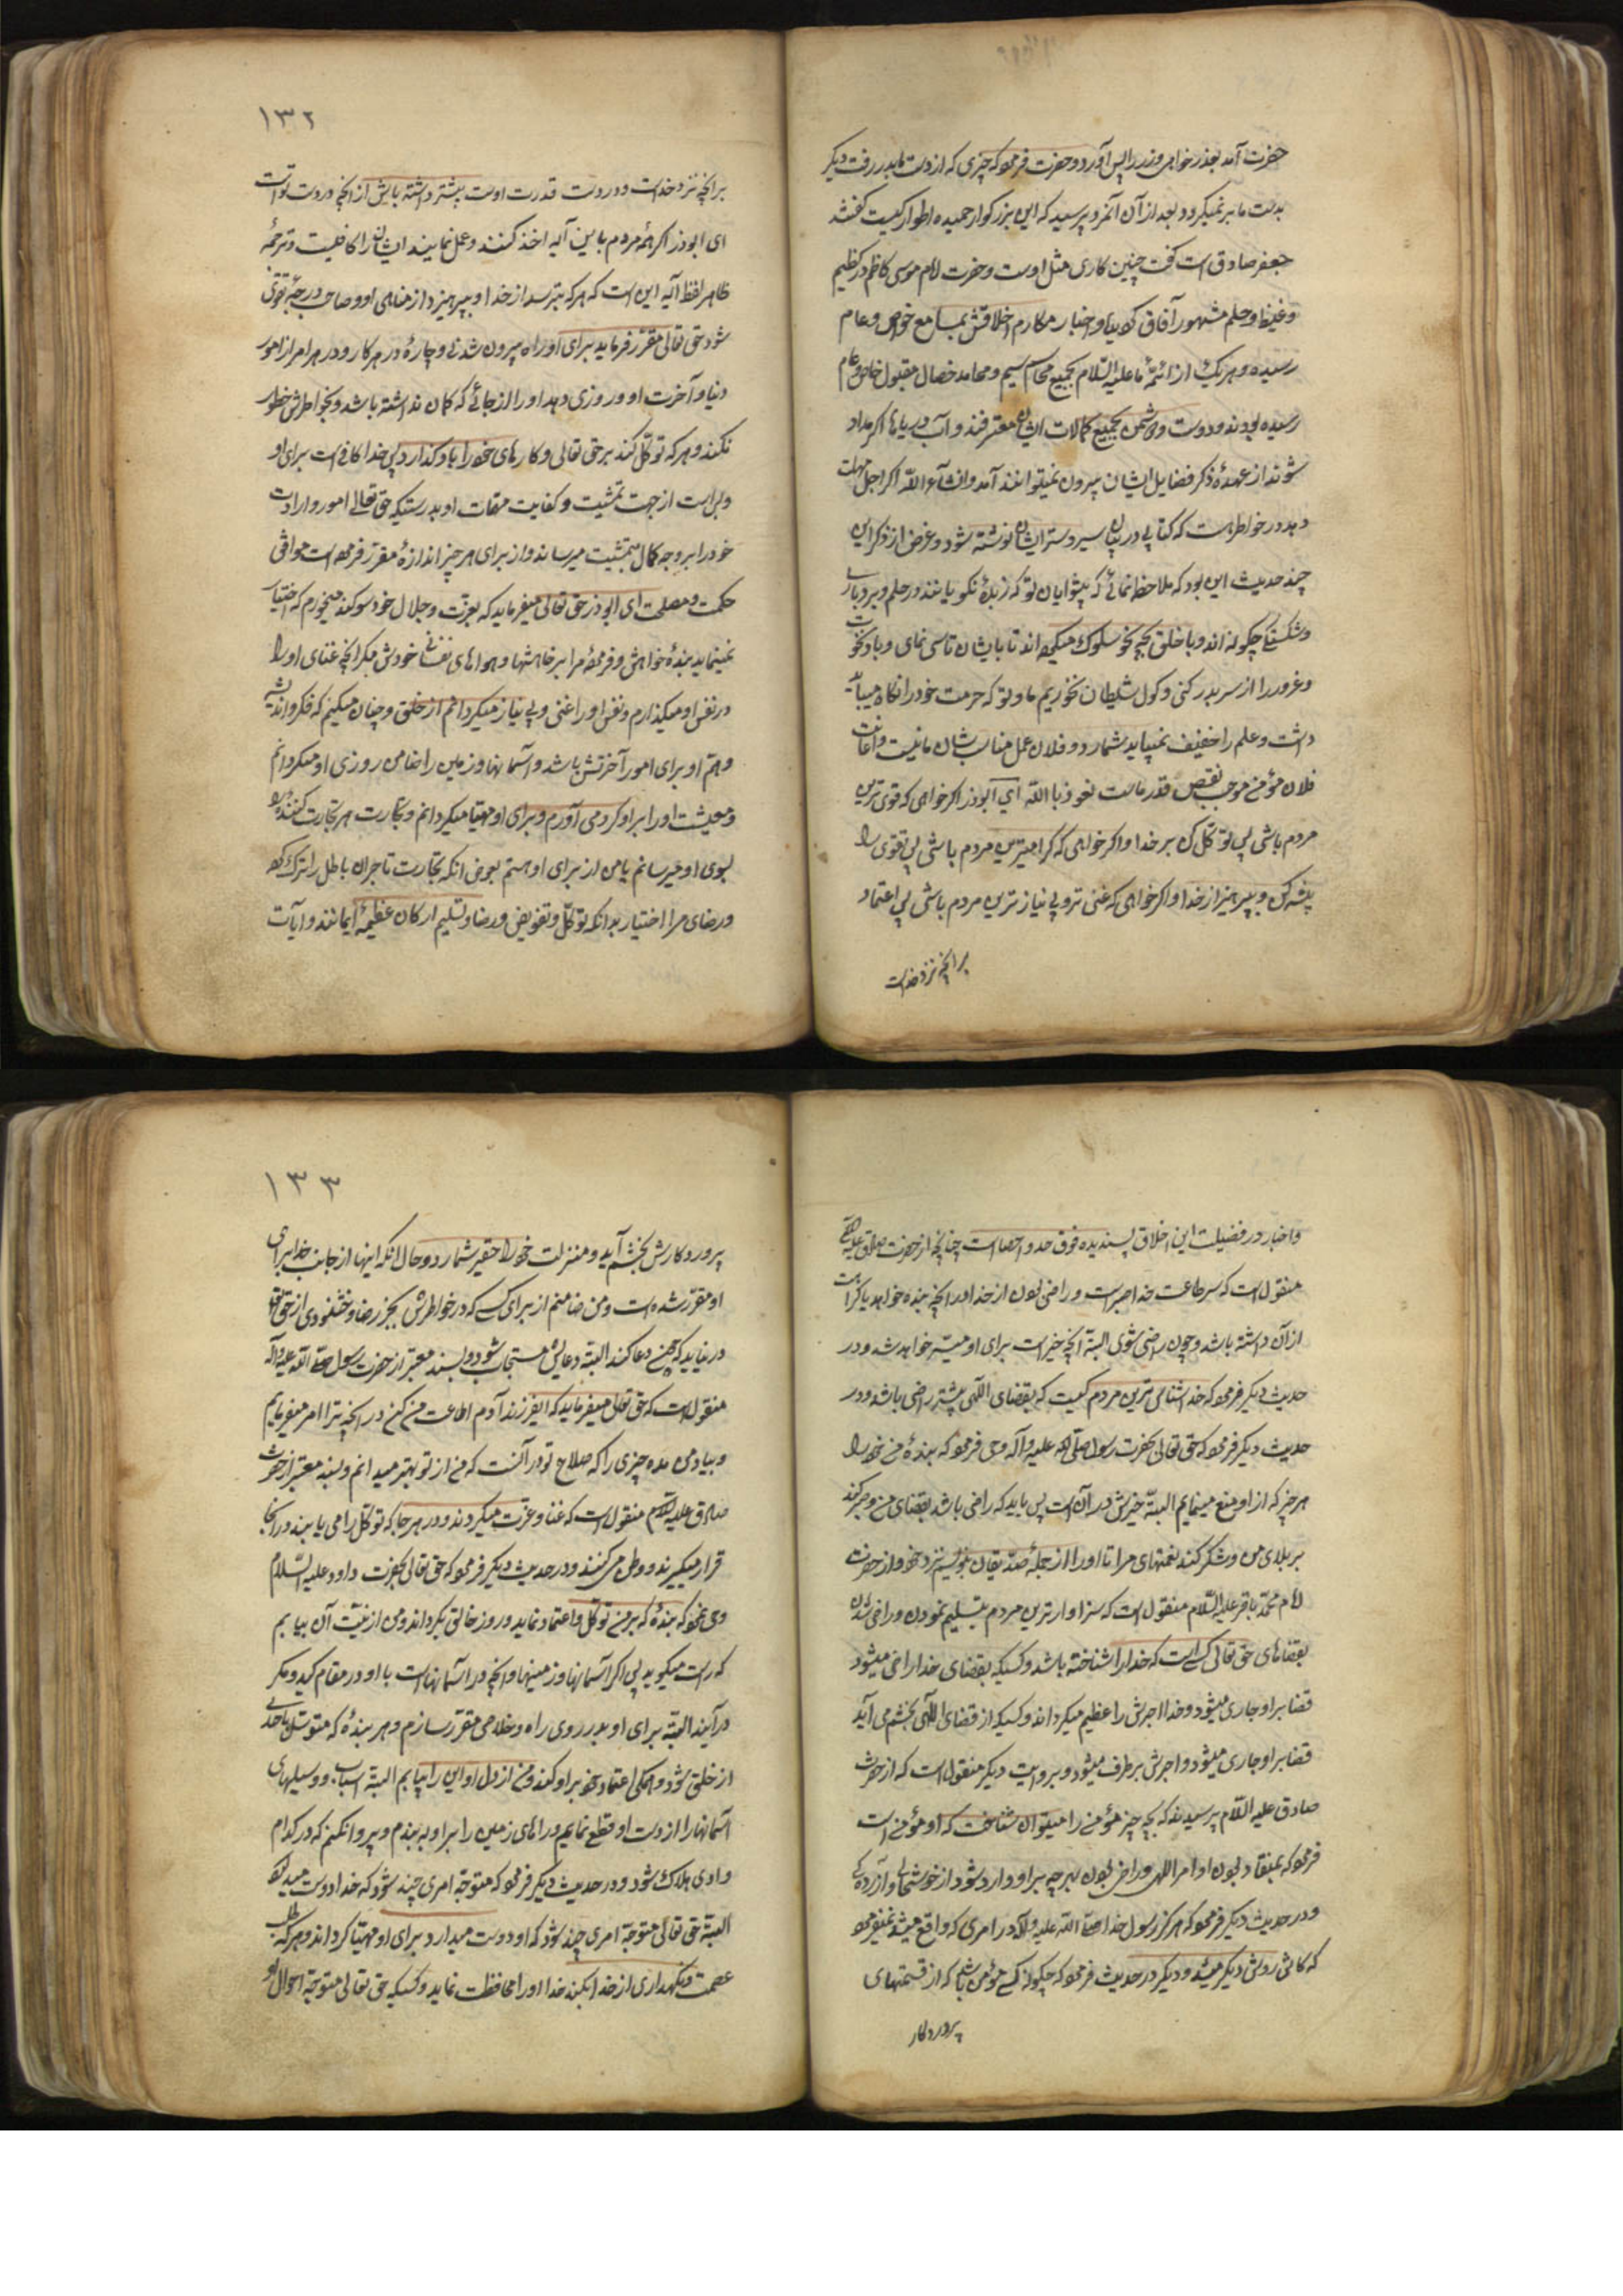 حضرت آمد بعذر خواهی و زر را پس آورد و حضرت فرمود که چیزی که از دست ما بدر رفت دیگر
بدست ما بر نمیگردد بعد از آن آنمرد پرسید که این بزرگوار حمیده اطوار کیست گفتند
جعفر صادق است گفت چنین کاری مثل اوست و حضرت امام موسی کاظم در کظم
غیظ و حلم مشهور آفاق گردیده و اخبار مکارم اخلاقش بمسامع خواص و عام
رسیده و هر یک از ائمّهٔ ما علیه السّلام بجمیع محاسن شیم و محامد خصال مقبول خاص و عام
رسیده بودند و دوست و دشمن بجمیع کمالات ایشان معترفند و آب دریاها اگر مداد
شوند از عهدهٔ ذکر فضایل ایشان بیرون نمیتوانند آمد و انشآء اللّه اگر اجل مهلت
دهد در خاطر هست که کتابی در بیان سیر و سنن ایشان نوشته شود و غرض از ذکر این
چند حدیث این بود که ملاحظه نمائی که پیشوایان تو که زبدهٔ نکویانند در حلم و بردباری
و شکستگی چگونه اند و با خلق بچه نحو سلوک میکرده اند تا بایشان تاسی نمای و باد نخوت
و غرور را از سر بدر کنی و گول شیطان نخوریم ما و تو که حرمت خود را نگاه میباید
داشت و علم را خفیف نمیباید شمارد و فلان عمل مناسب شان ما نیست و اعانت
فلان مؤمن موجب نقص قدر ماست نعوذ باللّه ای ابوذر اگر خواهی که قوی ترین
مردم باشی پس توکّل کن بر خدا و اگر خواهی که گرامیترین مردم باشی پس تقوی را
پیشه کن و بپرهیز از خدا و اگر خواهی که غنی تر و بی نیاز ترین مردم باشی پس اعتماد
بر انچه نزد خداست
۱۳۲
بر انچه نزد خداست و در دست قدرت اوست بیشتر داشته باش از انچه در دست تو است
ای ابوذر اگر همهٔ مردم باین آیه اخذ کنند و عمل نمایند ایشان را کافیست و ترجمهٔ
ظاهر لفظ آیه این است که هر که بترسد از خدا و بپرهیزد از مناهی او و صاحب درجهٔ تقوی
شود حق تعالی مقرّر فرماید برای او راه بیرون شدنی و چارهٔ در هر کار و در هر امر از امور
دنیا و آخرت او و روزی دهد او را از جائی که گمان نداشته باشد و بخاطرش خطور
نکند و هر که توکّل کند بر حق تعالی و کارهای خود را باو گذارد پس خدا کافی است برای او
و بس است از جهت تمشیت و کفایت مهمات او بدرستیکه حق تعالی امور و ارادات
خود را بر وجه کمال بتمشیت میرساند و از برای هر چیز اندازهٔ مقرّر فرموده است موافق
حکمت و مصلحت ای ابوذر حق تعالی میفرماید که بعزّت و جلال خود سوگند میخورم که اختیار
نمینماید بندهٔ خواهش و فرمودهٔ مرا بر خاهشها و هواهای نفسانی خودش مگر انچه غنای او را
در نفس او میگذارم و نفس او را غنی و بی نیاز میگردانم از خلق و چنان میکنیم که فکر و اندیشه
و همّ او برای امور آخرتش باشد و آسمانها و زمین را ضامن روزی او میگردانم
و معیشت او را بر او گرد می آورم و برای او مهیّا میگردانم و تجارت هر تجارت کننده را
بسوی او میرسانم یا من از برای او هستم بعوض انکه تجارت تاجران باطل را ترک کرده
و رضای مرا اختیار بدانکه توکّل و تفویض و رضا و تسلیم ارکان عظیمهٔ ایمانند و آیات
و اخبار در فضیلت این اخلاق پسندیده فوق حد و احصاست چنانچه از حضرت صادق علیه السلام
منقول است که سر طاعت خدا صبر است و راضی بودن از خدا در انچه بنده خواهد یا کراهت
از آن داشته باشد و چون راضی شوی البتّه آنچه خیر است برای او میسّر خواهد شد و در
حدیث دیگر فرمود که خدا شناس ترین مردم کسیت که بقضای اللّهی بیشتر راضی باشد و در
حدیث دیگر فرمود که حق تعالی بحضرت رسول صلّی اللّه علیه و آله وحی فرمود که بندهٔ من خود را
هر چیز که از او منع مینمایم البتّه خیرش در آن است پس باید که راضی باشد بقضای من و صبر کند
بر بلای من و شکر کند نعمتهای مرا تا او را از جملهٔ صدّیقان بنویسم نزد خود و از حضرت
امام محمّد باقر علیه السّلام منقول است که سزاوارترین مردم بتسلیم نمودن و راضی شدن
بقضاهای حق تعالی کسی است که خدا را شناخته باشد و کسیکه بقضای خدا راضی میشود
قضا بر او جاری میشود و خدا اجرش را عظیم میگرداند و کسیکه از قضای اللّهی بخشم می آید
قضا بر او جاری میشود و اجرش بر طرف میشود و بروایت دیگر منقول است که از حضرت
صادق علیه السّلام پرسیدند که بچه چیز مؤمن را میتوان شناخت که او مؤمن است
فرمود که بمنقاد بودن اوامر اللهی و راضی بودن بهر چه بر او وارد شود از خوشحالی و آزردگی
و در حدیث دیگر فرمود که هرگز رسول خدا صلّی اللّه علیه و آله در امری که واقع میشد نمیفرمود
که کاش روش دیگر میشد و دیگر در حدیث فرمود که چگونه کسی مؤمن باشد که از قسمتهای
پروردگار
۱۳۳
پروردگارش بخشم آید و منزلت خود را حقیر شمارد و حال انکه اینها از جانب خدا برای
او مقرّر شده است و من ضامنم از برای کسی که در خواطرش بجز رضا و خشنودی از حق تعالی
در نیاید که چون دعا کند البتّه دعایش مستجاب شود و بسند معتبر از حضرت رسول صلّی اللّه علیه و آله
منقول است که حق تعالی میفرماید که ایفرزند آدم اطاعت من کن در انچه ترا امر میفرمایم
و بیاد من مده چیزی را که صلاح تو در آنست که من از تو بهتر میدانم و بسند معتبر از حضرت
صادق علیه السّلام منقول است که غنا و عزّت میگردند و در هر جا که توکّل را می یابند در انجا
قرار میگیرند و وطن می کنند و در حدیث دیگر فرمود که حق تعالی بحضرت داود علیه السّلام
وحی نمود که بندهٔ که بر من توکّل و اعتماد نماید و روز خالق بگرداند و من از نیّت آن بیابم
که راست میگوید پس اگر آسمانها و زمینها و انچه در آسمانهاست با او در مقام کید و مکر
درآیند البتّه برای او بدر روی راه و خلاصی مقرّر سازم و هر بندهٔ که متوسّل باحدی
از خلق شود و همگی اعتماد خود بر او کند و من از دل او این را بیابم البتّه اسباب و وسیلهای
آسمانها را از دست او قطع نمایم و راههای زمین را بر او ببندم و پروا نکنم که در کدام
وادی هلاک شود و در حدیث دیگر فرمود که متوجّه امری چند شود که خدا دوست میدارد
البتّه حق تعالی متوجّه امری چند شود که او دوست میدارد برای او مهیّا گرداند و هر که طلب
عصمت و نگهداری از خدا بکند خدا او را محافظت نماید و کسیکه حق تعالی متوجّه احوال او